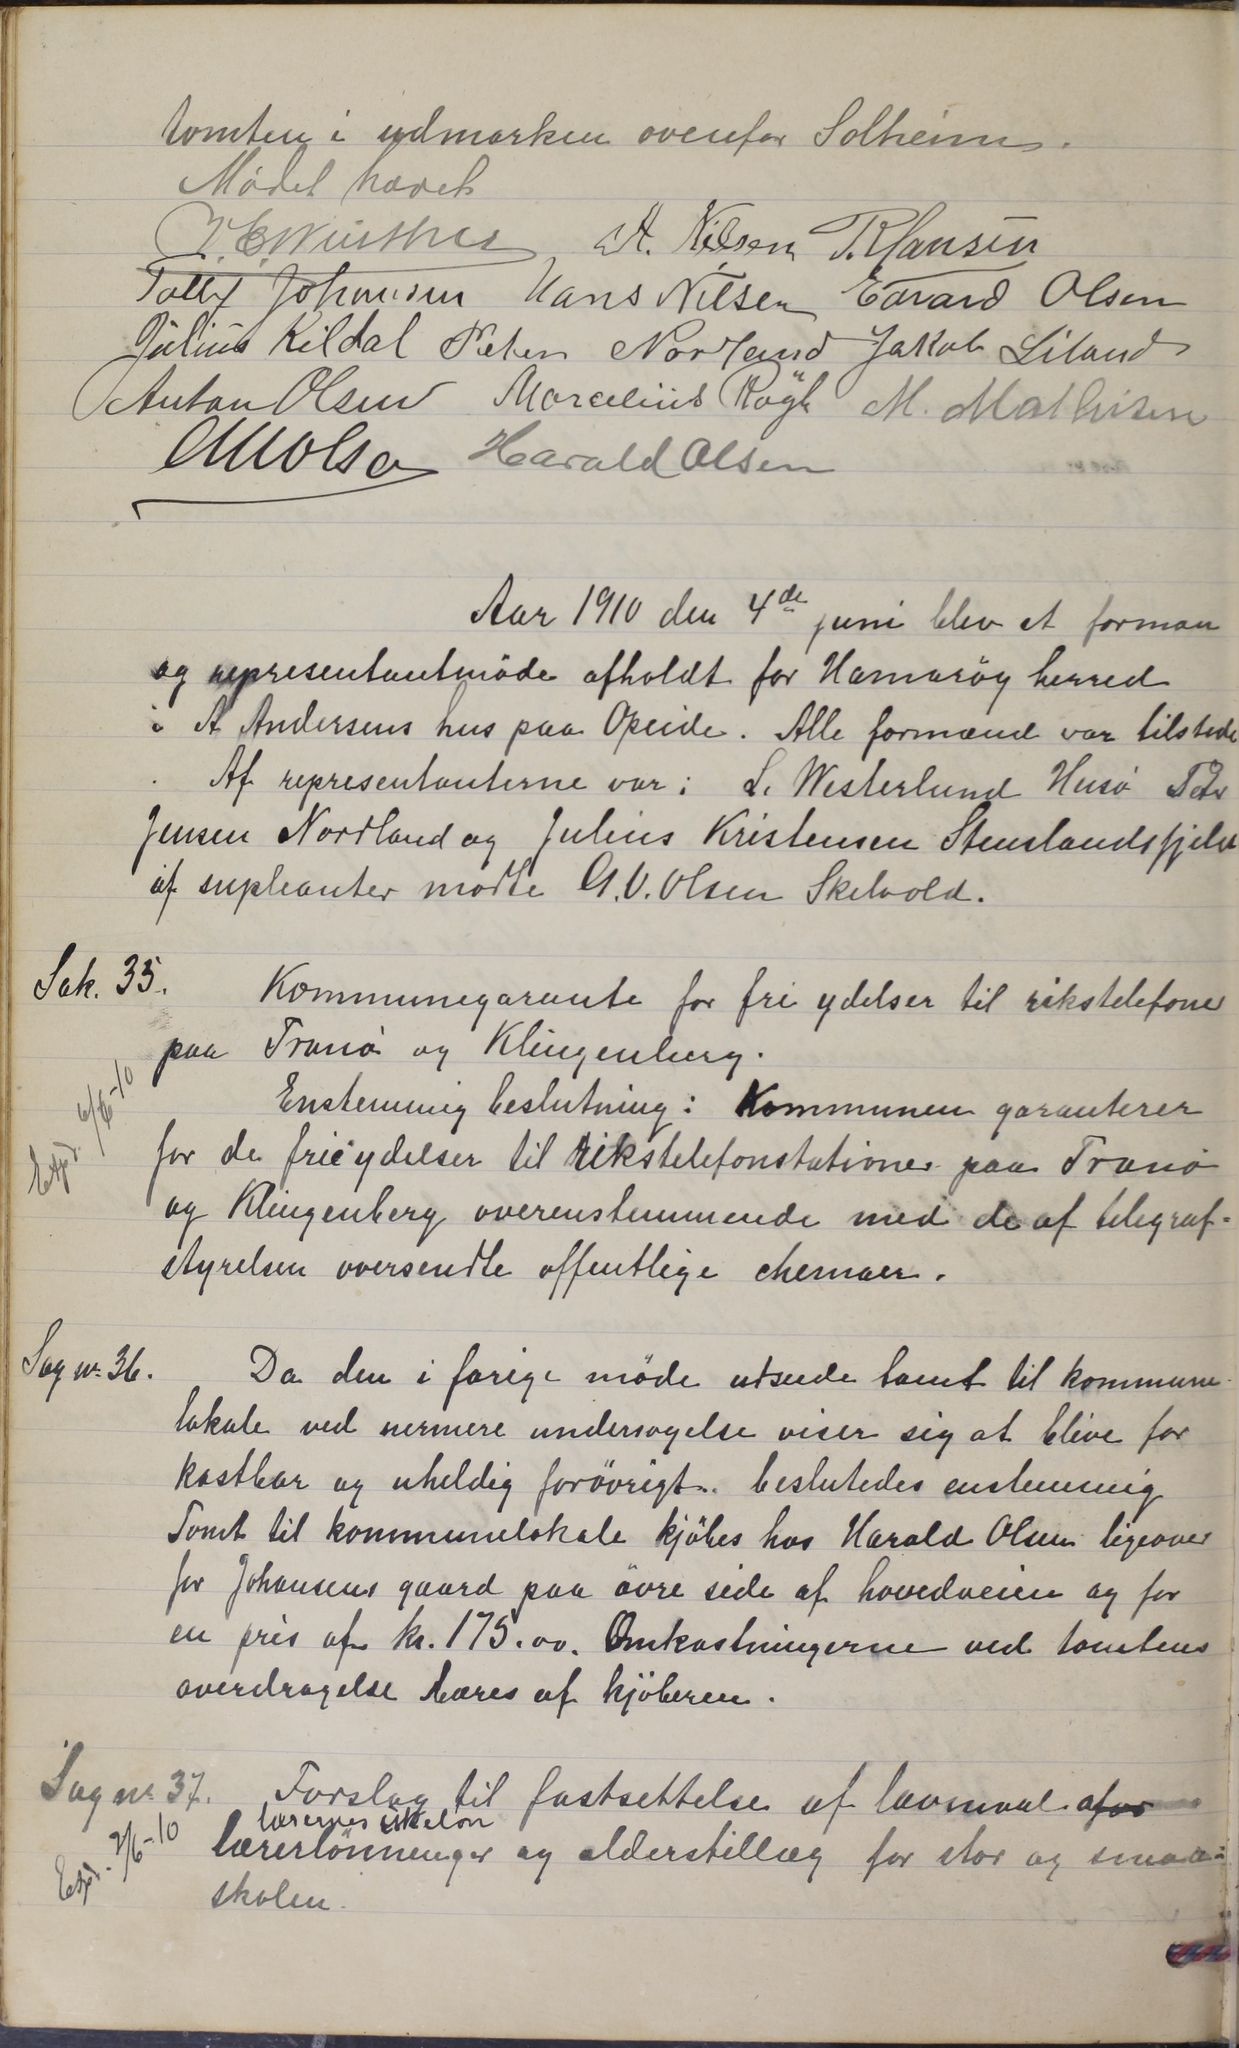 tomten i udmarken ovenfor Solheim.
Mødet hævet
A. Nilsen T. Hansen
Tolley Johansen Hans Nilsen Edvard Olsen
Julius Kildal Peter Norland Jakob Liland
Anton Olsen Marcelius Høgh M. Mathisen
Harald Olsen
Aar 1910 den 4de juni blev et forman
og representantmöde afholdt for Hamaröy herred
i A Andersens hus paa Opeide. Alle formænd var tilstede
Af representanterne var: L. Westerlund Husö Peder
Jensen Nordland og Julius Kristensen Stenslandsfjeld
af supleanter mødte G. V. Olsen Skelvold.
Sak. 35. Kommunegarante for fri ydelser til rikstelefoner
paa Tranö og Klingenberg.
Expd. 6/6-10
Enstemmig beslutning: Kommunen garanterer
for de frie ydelser til rikstelefonstationer paa Tranö
og Klingenberg overenstemmende med de af telegraf-
styrelsen oversendte offentlige chemaer.
Sag nr. 36. Da den i forige möde utseede tomt til kommune
lokale ved nermere undersøgelse viser sig at blive for
kostbar og uheldig forövrigt.. beslutedes enstemmig
Tomt til kommunelokale kjöbes hos Harald Olsen ligeover
for Johansens gaard paa övre side af hovedveien og for
en pris af kr. 175.00. Omkostningerne ved tomtens
overdragelse bæres af kjöberen.
Sag nr. 37. Forslag til fastsettelse af lavmaal afor
lærernes
Expd. 7/6-10
lærerlönninger og alderstillæg for stor og smaa-
skolen.